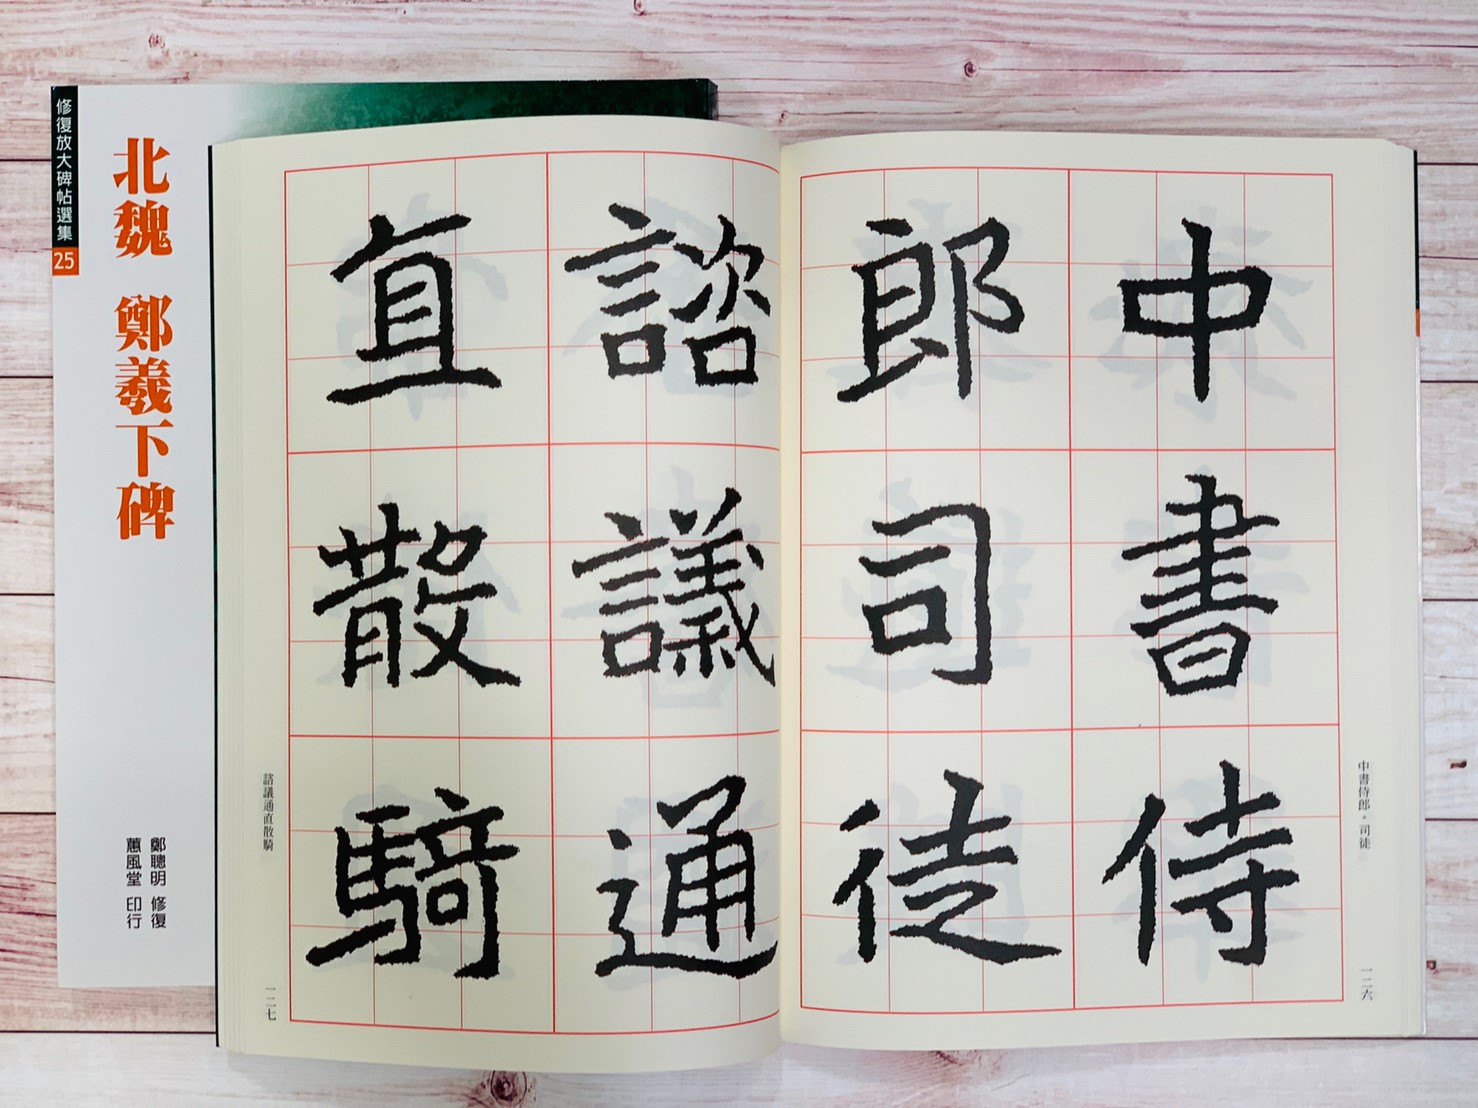 修復放大碑帖選集
25
北魏 鄭羲下碑
鄭聰明 修復
蕙風堂 印行
中書侍
郎司徒
中書侍郎。司徒
一二六
諮議通
直散騎
諮議通直散騎
一二七